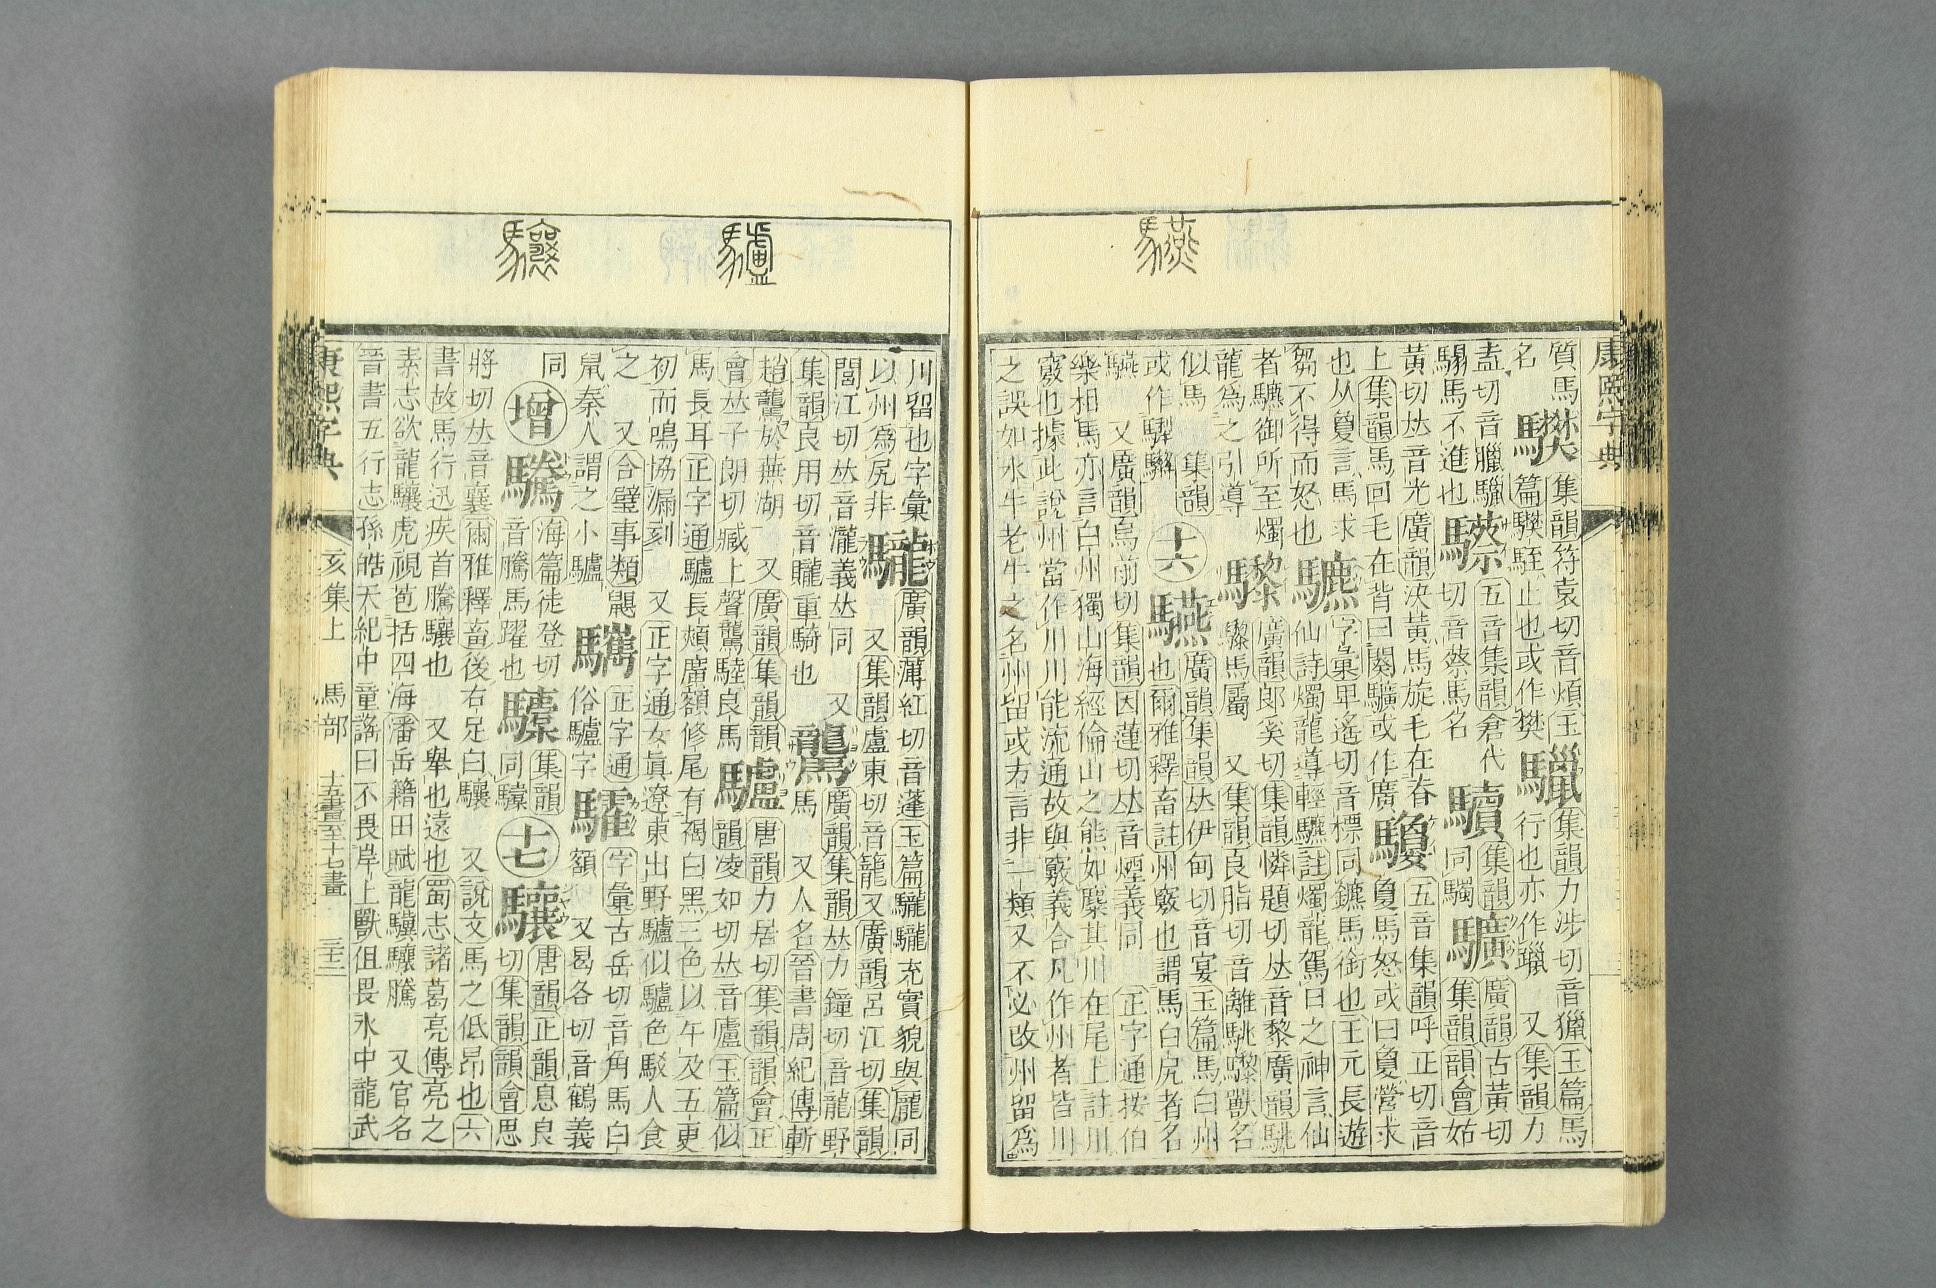 驠
康熙字典
質馬
名
䮳
集韻符袁切音煩玉
篇䮳駤止也或作樊
驖
集韻力涉切音獵玉篇馬
行也亦作躐 又集韻力
盍切音臘
騸馬不進也
五音集韻倉代
切音蔡馬名
集韻
同韣
廣韻古黃切
集韻韻會姑
黃切𠀤音光廣韻決黃馬旋毛在脊
上集韻馬回毛在背曰闋驥或作廣
五音集韻呼正切音
敻馬怒或曰敻營求
也从敻言馬求
芻不得而怒也
字彙甲遙切音標同鑣馬銜也王元長遊
仙詩燭龍導輕驪註燭龍駕日之神言仙
者驪御所至燭
龍爲之引導
廣韻郎奚切集韻憐題切𠀤音黎廣韻駣
馬屬 又集韻良脂切音離駣獸名
似馬
或作
集韻
十六
驠
廣韻集韻𠀤伊甸切音宴玉篇馬白州
也爾雅釋畜註州竅也謂馬白尻者名
驠 又廣韻烏前切集韻因蓮切𠀤音煙義同 正字通按伯
樂相馬亦言白州獨山海經倫山之熊如麋其川在尾上註川
竅也據此說州當作川川能流通故與竅義合凡作州者皆川
之誤如水牛老牛之名州留或方言非一類又不必改州留爲
驢
驤
川留也字彙
以州爲尻非
驡
廣韻薄紅切音蓬玉篇驡驡充實貌與龐同
又集韻盧東切音籠又廣韻呂江切集韻
閭江切𠀤音瀧義𠀤同 又
集韻良用切音隴重騎也
驡
廣韻集韻𠀤力鐘切音龍野
馬 又人名晉書周紀傳斬
趙驡於蕪湖 又廣韻集韻韻
會𠀤子朗切臧上聲驡騇良馬
驢
唐韻力居切集韻韻會正
韻凌如切𠀤音廬玉篇似
馬長耳正字通驢長頰廣額修尾有褐白黑三色以午及五更
初而鳴協漏刻 又正字通女眞遼東出野驢似驢色駁人食
之 又合璧事類鼰
鼠秦人謂之小驢
正字通
俗驢字
字彙古岳切音角馬白
額 又曷各切音鶴義
同
增
海篇徒登切
音騰馬躍也
集韻
同驝
十七
驤
唐韻正韻息良
切集韻韻會思
將切𠀤音襄爾雅釋畜後右足白驤 又說文馬之低昂也六
書故馬行迅疾首騰驤也 又舉也遠也蜀志諸葛亮傳亮之
素志欲龍驤虎視苞括四海潘岳籍田賦龍驥驤騰 又官名
晉書五行志孫皓天紀中童謠曰不畏岸上獸但畏水中龍武
康熙字典
亥集上 馬部 十五畫至十七畫 三十二